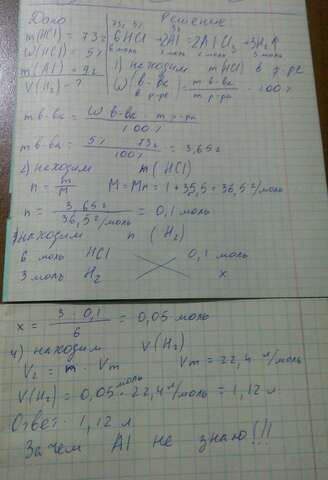 Дано
m(HCl) = 73г
W(HCl) = 5%
m(Al) = 9г
V(H₂) - ?
Решение
73г, 5% 9г
6HCl + 2Al = 2AlCl₃ + 3H₂↑
6 моль 2 моль 2 моль 3 моль
1) находим m HCl в р-ре
W в-ва в р-ре = m в-ва / m р-ра · 100%
m в-ва = W в-ва · m р-ра / 100%
m в-ва = 5% · 73г / 100% = 3,65г
2) находим n (HCl)
n = m/M M = Mr = 1 + 35,5 = 36,5 г/моль
n = 3,65г / 36,5 г/моль = 0,1 моль
3) находим n (H₂)
6 моль HCl 0,1 моль
3 моль H₂ x
x = 3 · 0,1 / 6 = 0,05 моль
4) находим V(H₂)
V₂ = n · Vm Vm = 22,4 л/моль
V(H₂) = 0,05 моль · 22,4 л/моль = 1,12 л.
Ответ: 1,12 л.
Зачем Al не знаю!!!